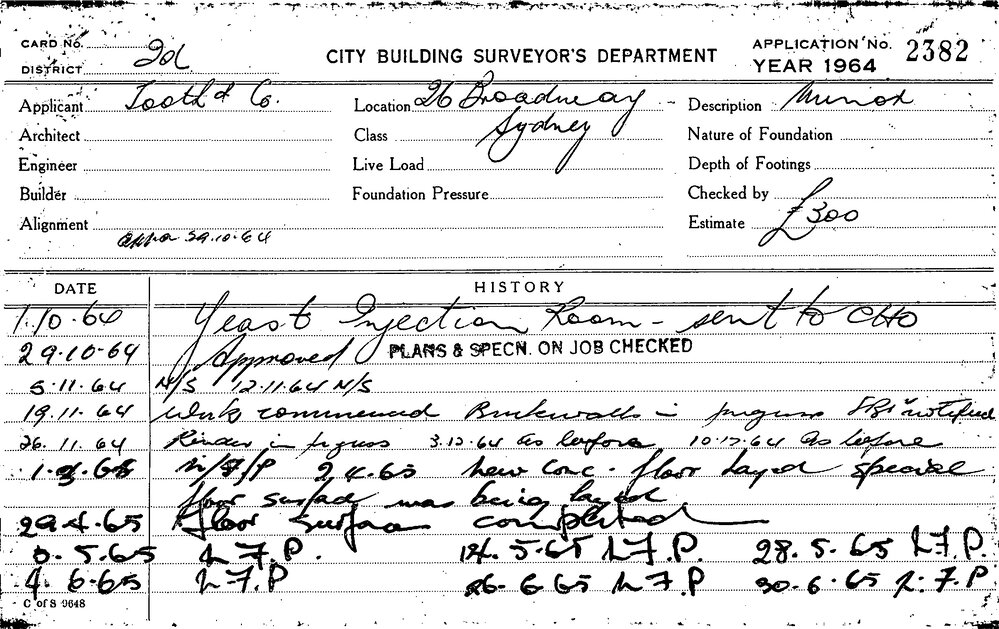 CARD No.
DISTRICT 2d
CITY BUILDING SURVEYOR'S DEPARTMENT
APPLICATION No. 2382
YEAR 1964
Applicant Tooth & Co. Location 26 Broadway Description Minor
Architect Class Sydney Nature of Foundation
Engineer Live Load Depth of Footings
Builder Foundation Pressure Checked by
Alignment Estimate £300
29.10.64
DATE HISTORY
1.10.64 Yeast Injection Room - sent to CHO
29.10.64 Approved PLANS & SPECN. ON JOB CHECKED
5.11.64 N/S 12.11.64 N/S
19.11.64 Work commenced Brickwalls in progress notified
26.11.64 Render in progress 3.12.64 As before 10.12.64 As before
N/F/P 2 4.65 new conc. floor layed special
floor surface was being layed
29.4.65 floor surface completed
5.65 N.F.P. 14.5.65 N.F.P. 28.5.65 N.F.P.
4.6.65 N.F.P 26.6.65 N.F.P 30.6.65 N.F.P
C of S 9648